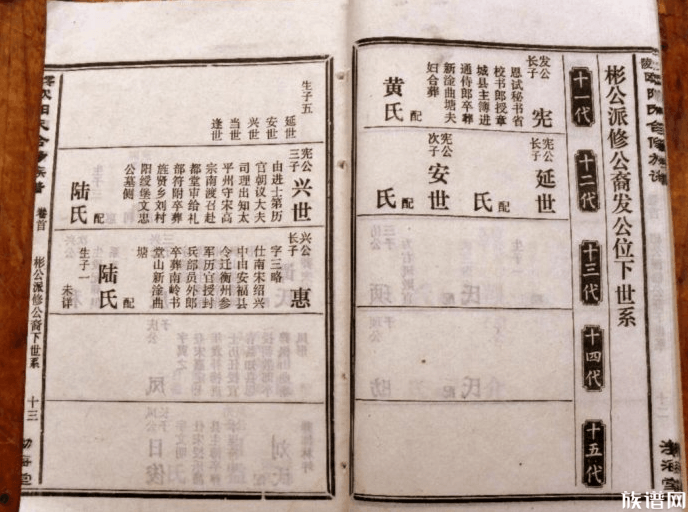 彬公派修公裔发公位下世系
十一代
十二代
十三代
十四代
十五代
发公
长子
宪
恩试秘书省
校书郎授章
城县主簿进
通侍郎卒葬
新淦曲塘夫
妇合葬
配
黄氏
宪公
长子
延世
配
氏
宪公
次子
安世
配
氏
生子五
延世
安世
兴世
当世
逢世
宪公
三子
兴世
由进士第历
官朝议大夫
司理出知太
平州守宋高
宗南渡召赴
都堂审给礼
部符附卒葬
旌贤乡刘村
阳绶堡文忠
公墓侧
配
陆氏
兴公
长子
惠
字三略
仕南宋绍兴
中由安福县
令迁衡州参
军历官授封
兵部员外郎
卒葬南岭书
堂山新淦曲
塘
配
陆氏
生子一
未详
卷首
彬公派修公裔下世系
十三
族谱网